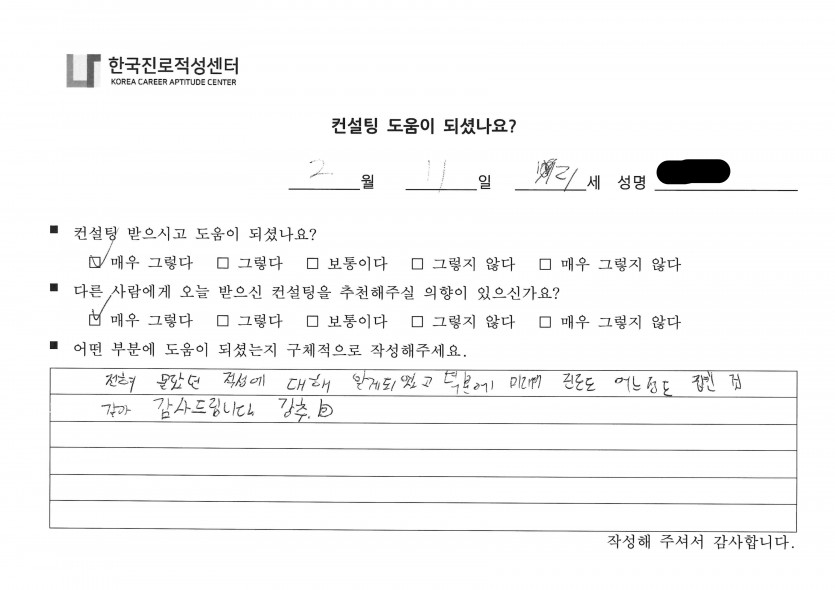 한국진로적성센터
KOREA CAREER APTITUDE CENTER
컨설팅 도움이 되셨나요?
2 월 11 일 21 세 성명
■ 컨설팅 받으시고 도움이 되셨나요?
☑ 매우 그렇다 □ 그렇다 □ 보통이다 □ 그렇지 않다 □ 매우 그렇지 않다
■ 다른 사람에게 오늘 받으신 컨설팅을 추천해주실 의향이 있으신가요?
☑ 매우 그렇다 □ 그렇다 □ 보통이다 □ 그렇지 않다 □ 매우 그렇지 않다
■ 어떤 부분에 도움이 되었는지 구체적으로 작성해주세요.
전혀 몰랐던 적성에 대해 알게되었고 덕분에 미래 진로도 어느정도 잡힌 것
같아 감사드립니다 강추.
작성해 주셔서 감사합니다.